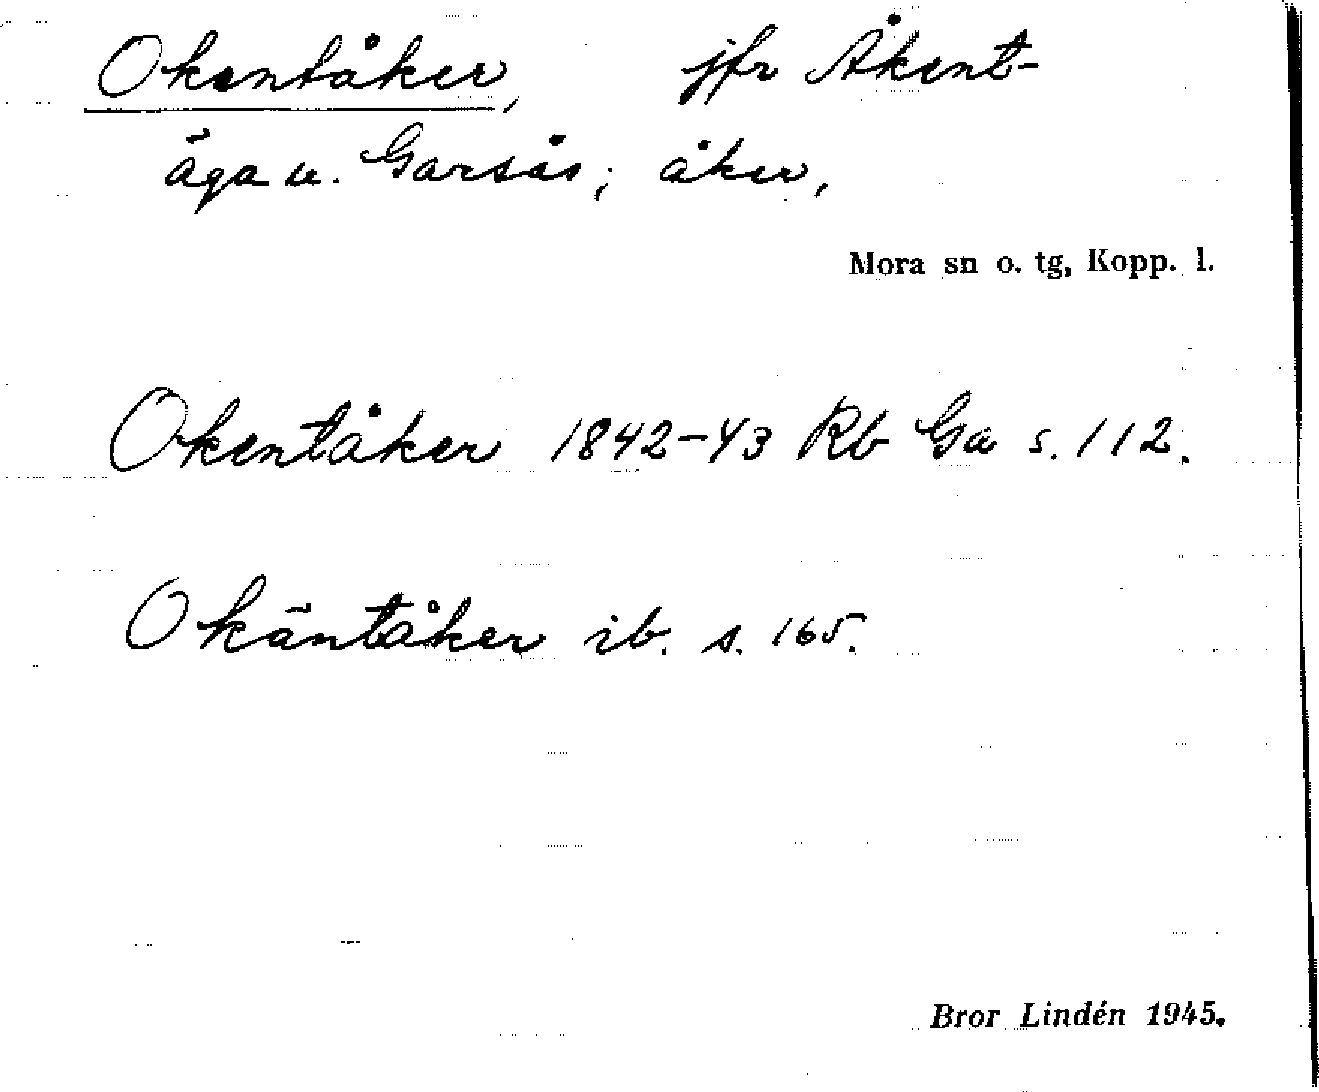 Okentåker, jfr Åkent-
äga u. Garsås; åker,
Mora sn o. tg, Kopp. l.
Okentåker 1842-43 Rb Ga s. 112.
Okäntåker ib. s. 165.
Bror Lindén 1945.